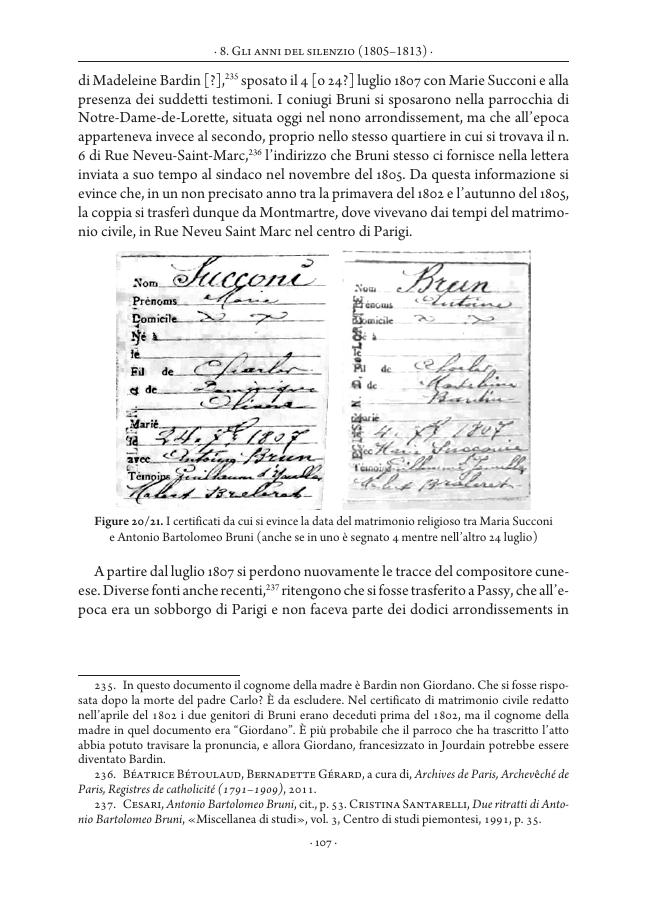 · 8. Gli anni del silenzio (1805–1813) ·
di Madeleine Bardin [?],235 sposato il 4 [o 24?] luglio 1807 con Marie Succoni e alla
presenza dei suddetti testimoni. I coniugi Bruni si sposarono nella parrocchia di
Notre-Dame-de-Lorette, situata oggi nel nono arrondissement, ma che all'epoca
apparteneva invece al secondo, proprio nello stesso quartiere in cui si trovava il n.
6 di Rue Neveu-Saint-Marc,236 l'indirizzo che Bruni stesso ci fornisce nella lettera
inviata a suo tempo al sindaco nel novembre del 1805. Da questa informazione si
evince che, in un non precisato anno tra la primavera del 1802 e l'autunno del 1805,
la coppia si trasferì dunque da Montmartre, dove vivevano dai tempi del matrimo-
nio civile, in Rue Neveu Saint Marc nel centro di Parigi.
Nom Succoni
Prénoms Marie
Domicile
Né à
le
Fil de Charles
et de Dominique
Oliva
Marié
24. 1807
avec Antoine Brun
Témoins Guillaum
Nom Brun
Prénoms Antoine
Domicile
Né à
le
Fil de Charles
et de Madeleine
Bardin
Marié
4. 1807
avec Marie Succoni
Témoins Guillaum
Figure 20/21. I certificati da cui si evince la data del matrimonio religioso tra Maria Succoni
e Antonio Bartolomeo Bruni (anche se in uno è segnato 4 mentre nell'altro 24 luglio)
A partire dal luglio 1807 si perdono nuovamente le tracce del compositore cune-
ese. Diverse fonti anche recenti,237 ritengono che si fosse trasferito a Passy, che all'e-
poca era un sobborgo di Parigi e non faceva parte dei dodici arrondissements in
235. In questo documento il cognome della madre è Bardin non Giordano. Che si fosse rispo-
sata dopo la morte del padre Carlo? È da escludere. Nel certificato di matrimonio civile redatto
nell'aprile del 1802 i due genitori di Bruni erano deceduti prima del 1802, ma il cognome della
madre in quel documento era “Giordano”. È più probabile che il parroco che ha trascritto l'atto
abbia potuto travisare la pronuncia, e allora Giordano, francesizzato in Jourdain potrebbe essere
diventato Bardin.
236. Béatrice Bétoulaud, Bernadette Gérard, a cura di, Archives de Paris, Archevêché de
Paris, Registres de catholicité (1791–1909), 2011.
237. Cesari, Antonio Bartolomeo Bruni, cit., p. 53. Cristina Santarelli, Due ritratti di Anto-
nio Bartolomeo Bruni, «Miscellanea di studi», vol. 3, Centro di studi piemontesi, 1991, p. 35.
· 107 ·